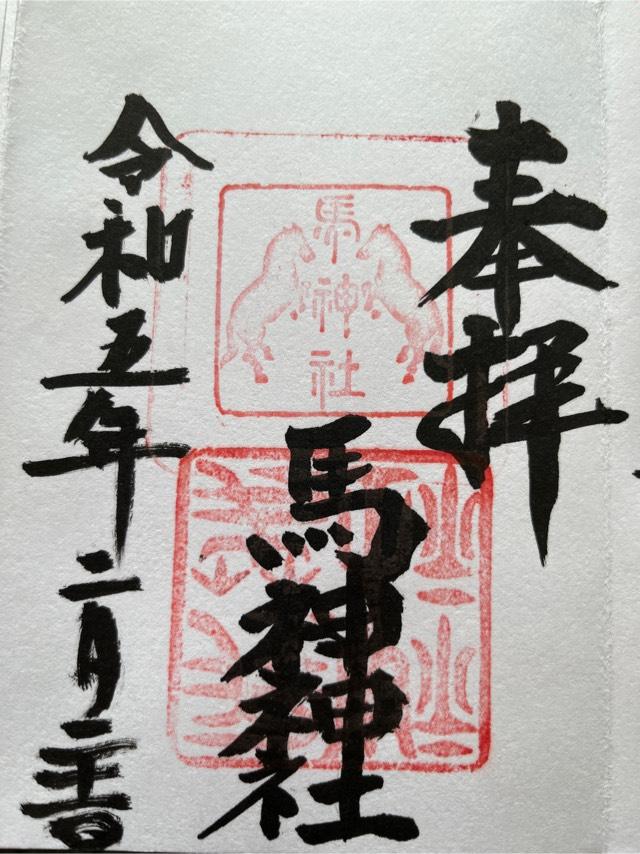 奉拝
馬神社
馬神社
令和五年二月二十
日